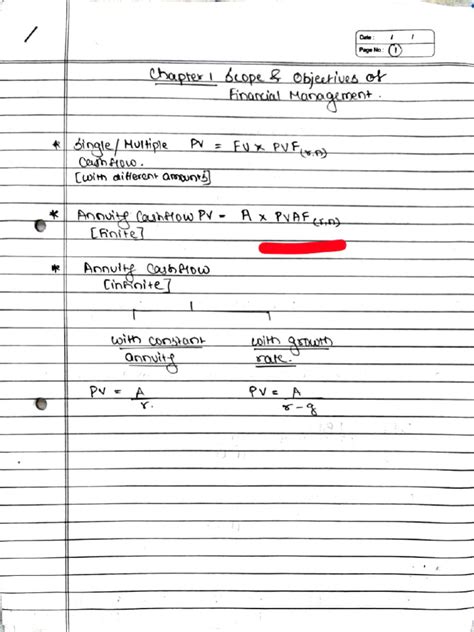 Date : / /
Page No : 1
Chapter 1 Scope & Objectives of
Financial Management.
* Single/Multiple PV = FV x PVF(r,n)
Cashflow.
[with different amounts]
* Annuity Cashflow PV = A x PVAF(r,n)
[Finite]
* Annuity Cashflow
[infinite]
with constant with growth
annuity rate.
PV = A/r. PV = A/r-g